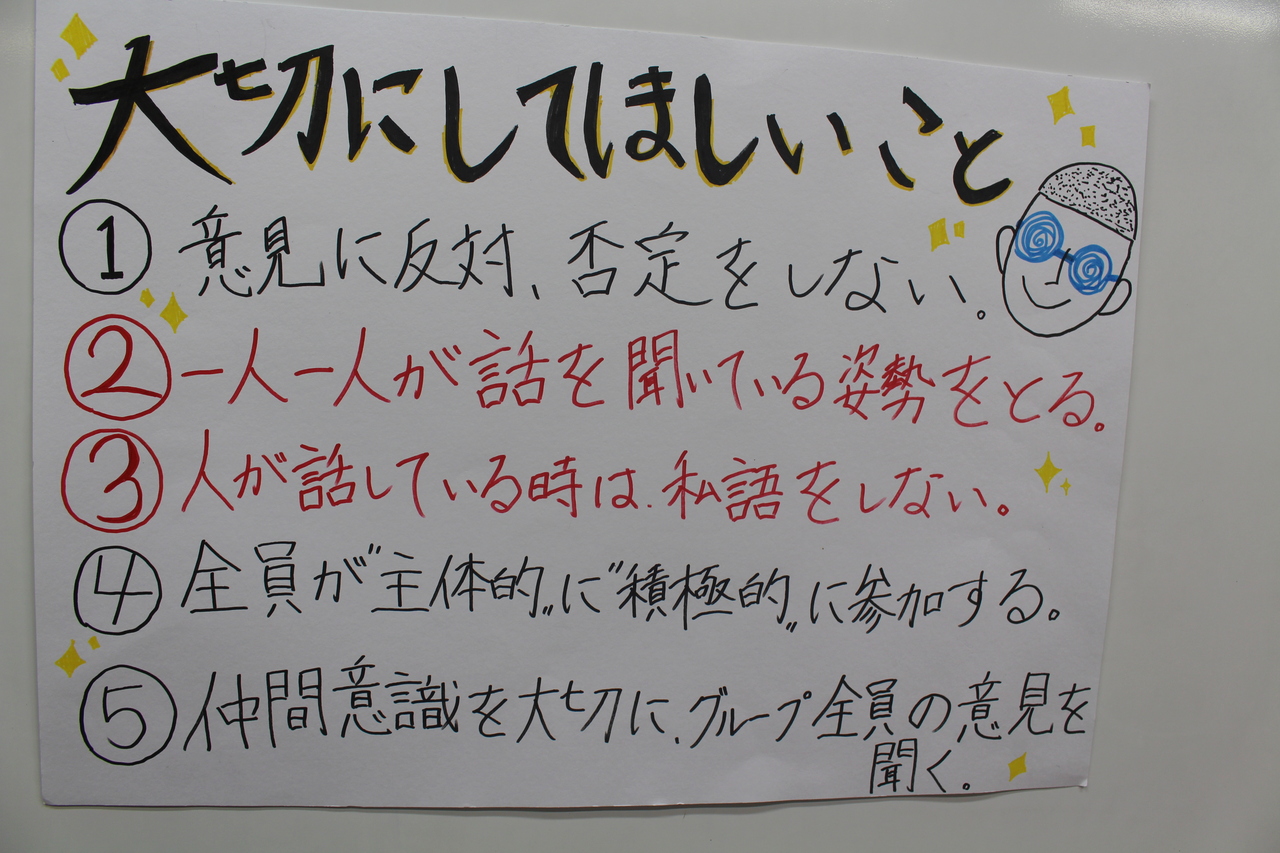 大切にしてほしいこと
① 意見に反対、否定をしない。
② 一人一人が話を聞いている姿勢をとる。
③ 人が話している時は、私語をしない。
④ 全員が〝主体的〟に〝積極的〟に参加する。
⑤ 仲間意識を大切に、グループ全員の意見を
聞く。